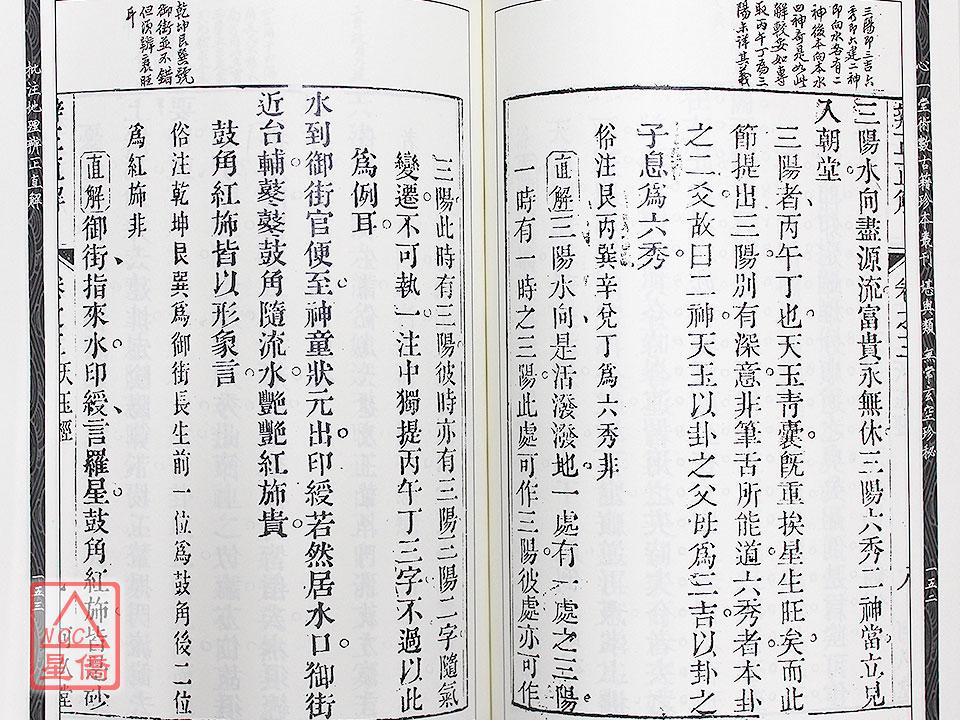 心一堂術數古籍珍本叢刊 堪輿類 無常玄空珍秘
一五二
三陽即三吉六
秀即六建二神
即向水各有二
神後本向本水
四神奇是如此
解較妥如專
取丙午丁為三
陽未詳其義
辨正直解
卷之三
八
三陽水向盡源流富貴永無休三陽六秀二神當立見
入朝堂
三陽者丙午丁也天玉靑囊旣重挨星生旺矣而此
節提出三陽別有深意非筆舌所能道六秀者本卦
之二爻故曰二神天玉以卦之父母為三吉以卦之
子息為六秀
俗注艮丙巽辛兌丁為六秀非
直解三陽水向是活潑潑地一處有一處之三陽
一時有一時之三陽此處可作三陽彼處亦可作
乾坤艮巽號
御街並不錯
但須辨衰旺
耳
三陽此時有三陽彼時亦有三陽三陽二字隨氣
變遷不可執一注中獨提丙午丁三字不過以此
為例耳
水到御街官便至神童狀元出印綬若然居水口御街
近台輔鼕鼕鼓角隨流水艷艷紅旆貴
鼓角紅旆皆以形象言
俗注乾坤艮巽為御街長生前一位為鼓角後二位
為紅旆非
直解御街指來水印綬言羅星鼓角紅旆皆言砂
辨正直解
卷之三天玉經
可以堂
批注地理辨正直解
一五三
NCC
星僑